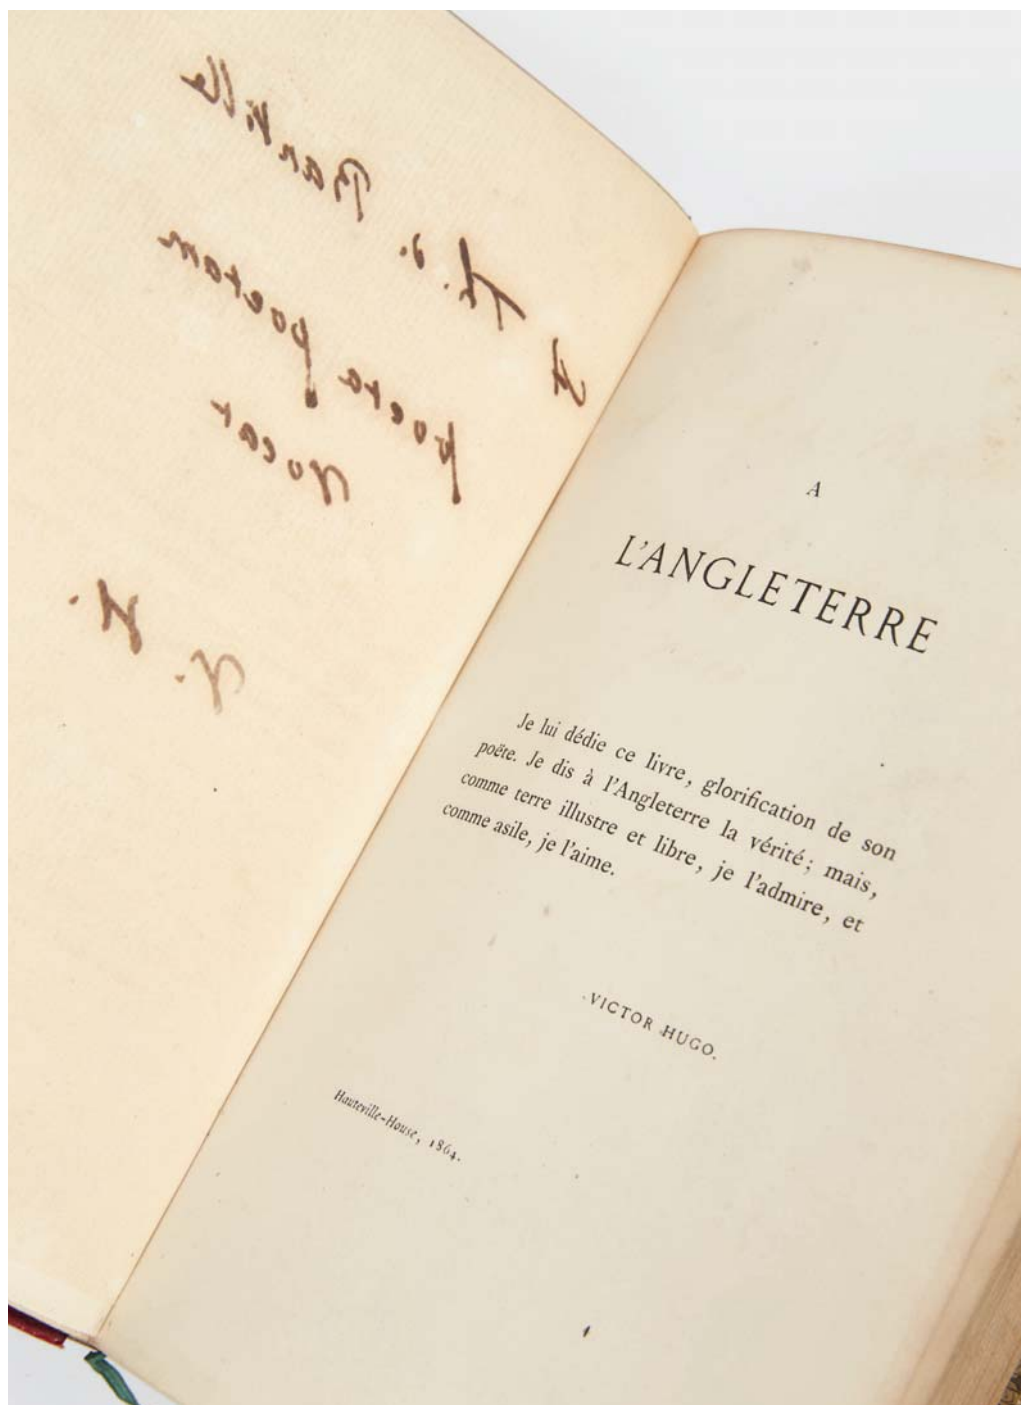 A Th. d. Banville
poeta poetam
vocat
V. H.
A
L'ANGLETERRE
Je lui dédie ce livre, glorification de son
poëte. Je dis à l'Angleterre la vérité; mais,
comme terre illustre et libre, je l'admire, et
comme asile, je l'aime.
VICTOR HUGO.
Hauteville-House, 1864.